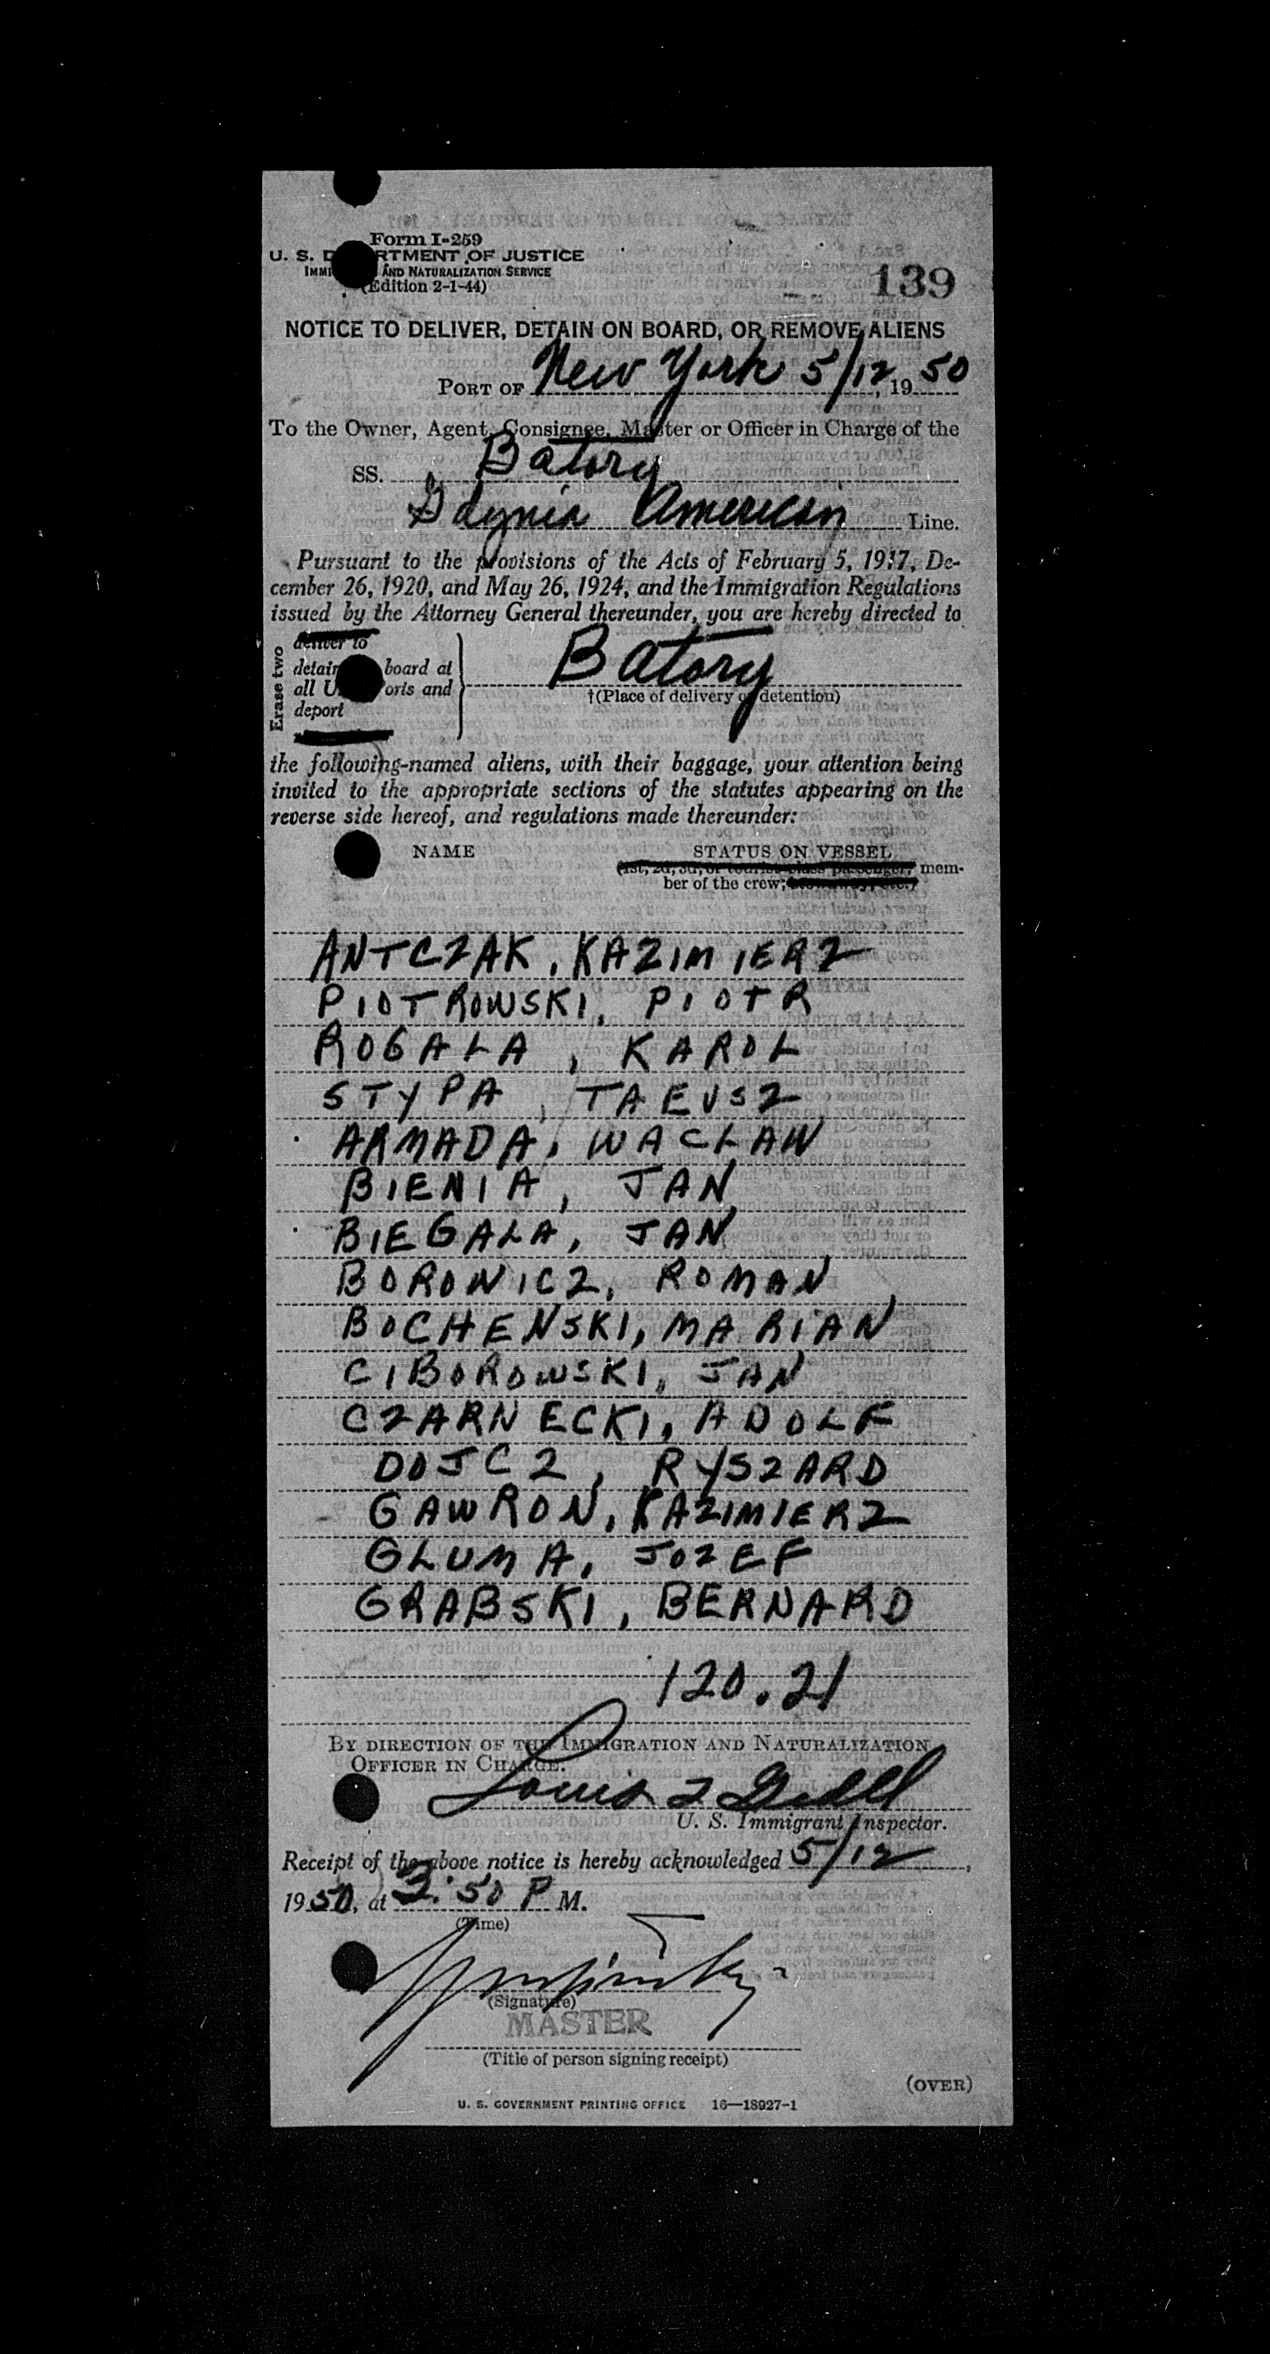 Form I-259
U. S. D RTMENT OF JUSTICE
IMMI AND NATURALIZATION SERVICE
(Edition 2-1-44)
139
NOTICE TO DELIVER, DETAIN ON BOARD, OR REMOVE ALIENS
PORT OF New York 5/12, 19 50
To the Owner, Agent, Consignee, Master or Officer in Charge of the
SS. Batory
Gdynia American Line.
Pursuant to the provisions of the Acts of February 5, 1917, De-
cember 26, 1920, and May 26, 1924, and the Immigration Regulations
issued by the Attorney General thereunder, you are hereby directed to
Erase two
deliver to
detain board at
all U. orts and
deport
Batory
†(Place of delivery or detention)
the following-named aliens, with their baggage, your attention being
invited to the appropriate sections of the statutes appearing on the
reverse side hereof, and regulations made thereunder:
NAME STATUS ON VESSEL
(1st, 2d, 3d, or tourist class passenger; mem-
ber of the crew;
ANTCZAK, KAZIMIERZ
PIOTROWSKI, PIOTR
ROGALA, KAROL
STYPA, TAEUSZ
ARMADA, WACLAW
BIENIA, JAN
BIEGALA, JAN
BOROWICZ, ROMAN
BOCHENSKI, MARIAN
CIBOROWSKI, JAN
CZARNECKI, ADOLF
DOJCZ, RYSZARD
GAWRON, KAZIMIERZ
GLUMA, JOZEF
GRABSKI, BERNARD
120.21
BY DIRECTION OF THE IMMIGRATION AND NATURALIZATION
OFFICER IN CHARGE.
Louis
U. S. Immigrant Inspector.
Receipt of the above notice is hereby acknowledged 5/12,
1950, at 3:50 P M.
(Time)
(Signature)
MASTER
(Title of person signing receipt)
(OVER)
U. S. GOVERNMENT PRINTING OFFICE 16—18927-1